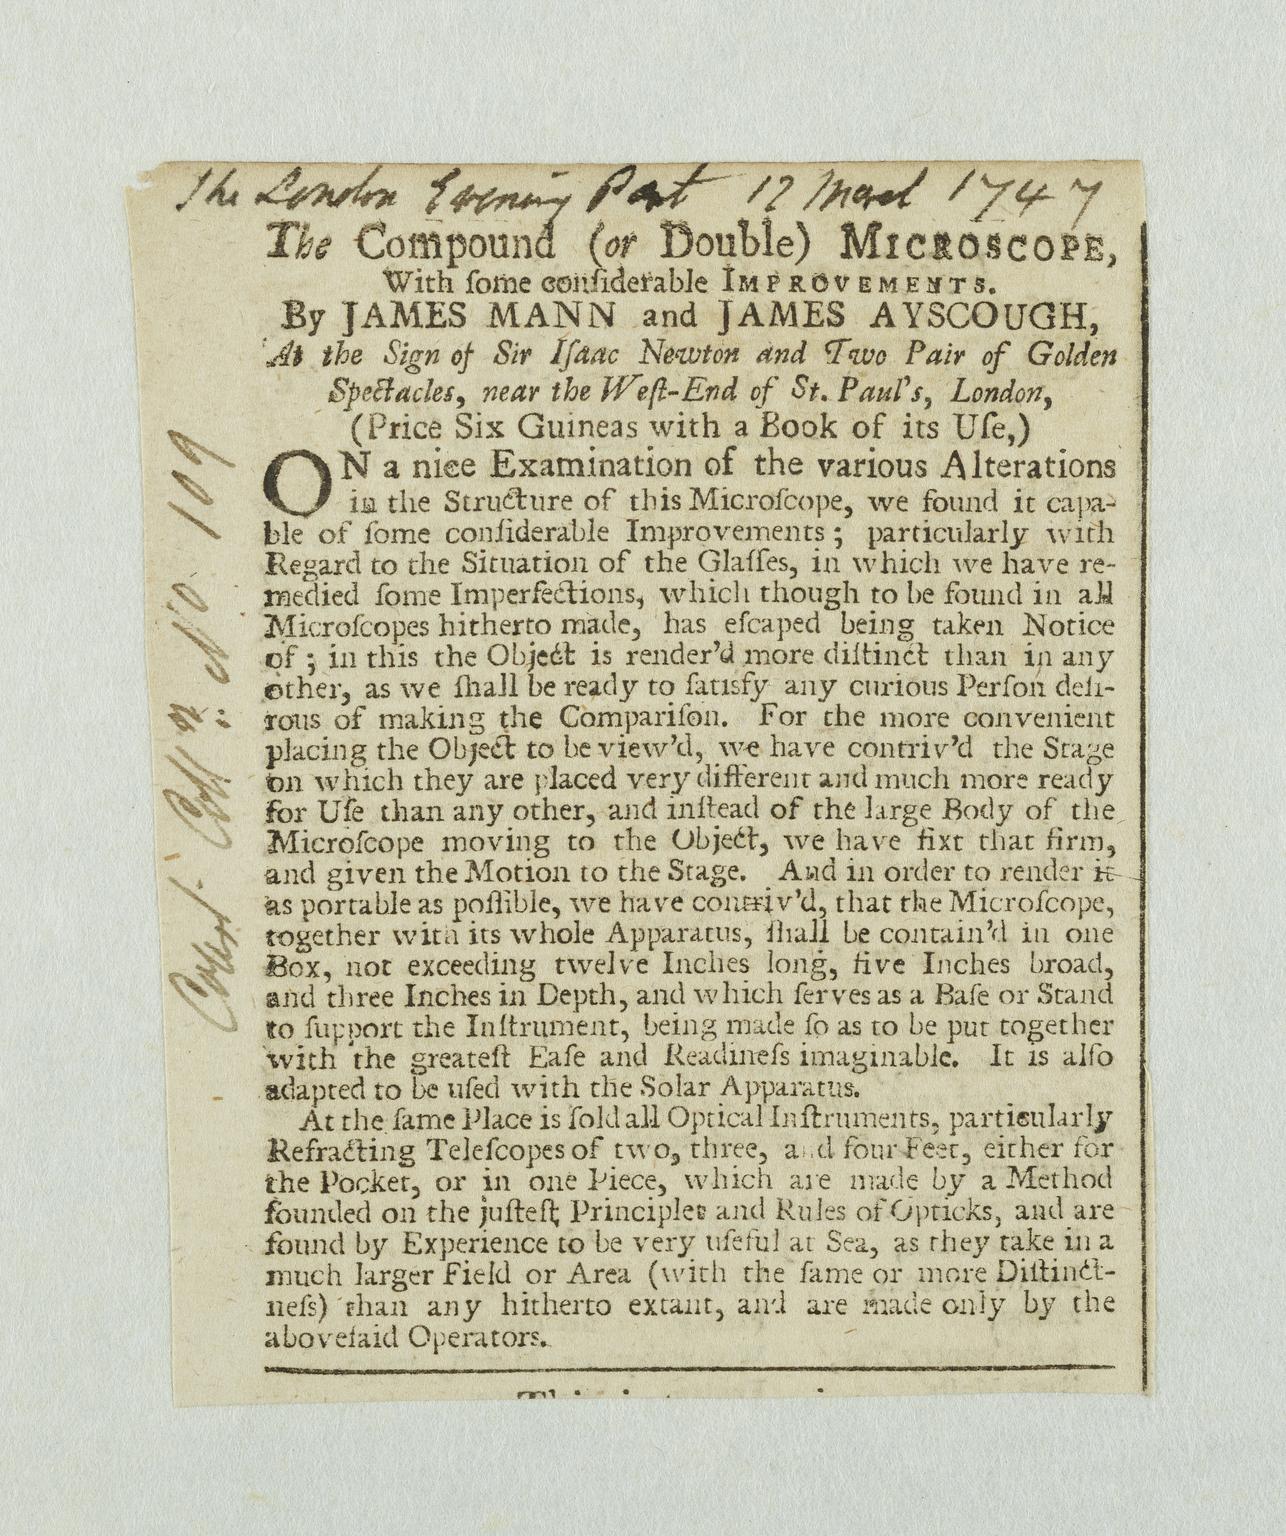 The London Evening Post 12 March 1747
The Compound (or Double) MICROSCOPE,
With ſome conſiderable IMPROVEMENTS.
By JAMES MANN and JAMES AYSCOUGH,
At the Sign of Sir Iſaac Newton and Two Pair of Golden
Spectacles, near the Weſt-End of St. Paul's, London,
(Price Six Guineas with a Book of its Uſe,)
ON a nice Examination of the various Alterations
in the Structure of this Microſcope, we found it capa-
ble of ſome conſiderable Improvements; particularly with
Regard to the Situation of the Glaſſes, in which we have re-
medied ſome Imperfections, which though to be found in all
Microſcopes hitherto made, has eſcaped being taken Notice
of; in this the Object is render'd more diſtinct than in any
other, as we ſhall be ready to ſatisfy any curious Perſon deſi-
rous of making the Compariſon. For the more convenient
placing the Object to be view'd, we have contriv'd the Stage
on which they are placed very different and much more ready
for Uſe than any other, and inſtead of the large Body of the
Microſcope moving to the Object, we have fixt that firm,
and given the Motion to the Stage. And in order to render it
as portable as poſſible, we have contriv'd, that the Microſcope,
together with its whole Apparatus, ſhall be contain'd in one
Box, not exceeding twelve Inches long, five Inches broad,
and three Inches in Depth, and which ſerves as a Baſe or Stand
to ſupport the Inſtrument, being made ſo as to be put together
with the greateſt Eaſe and Readineſs imaginable. It is alſo
adapted to be uſed with the Solar Apparatus.
At the ſame Place is ſold all Optical Inſtruments, particularly
Refracting Teleſcopes of two, three, and four Feet, either for
the Pocket, or in one Piece, which are made by a Method
founded on the juſteſt Principles and Rules of Opticks, and are
found by Experience to be very uſeful at Sea, as they take in a
much larger Field or Area (with the ſame or more Diſtinct-
neſs) than any hitherto extant, and are made only by the
aboveſaid Operators.
No 109